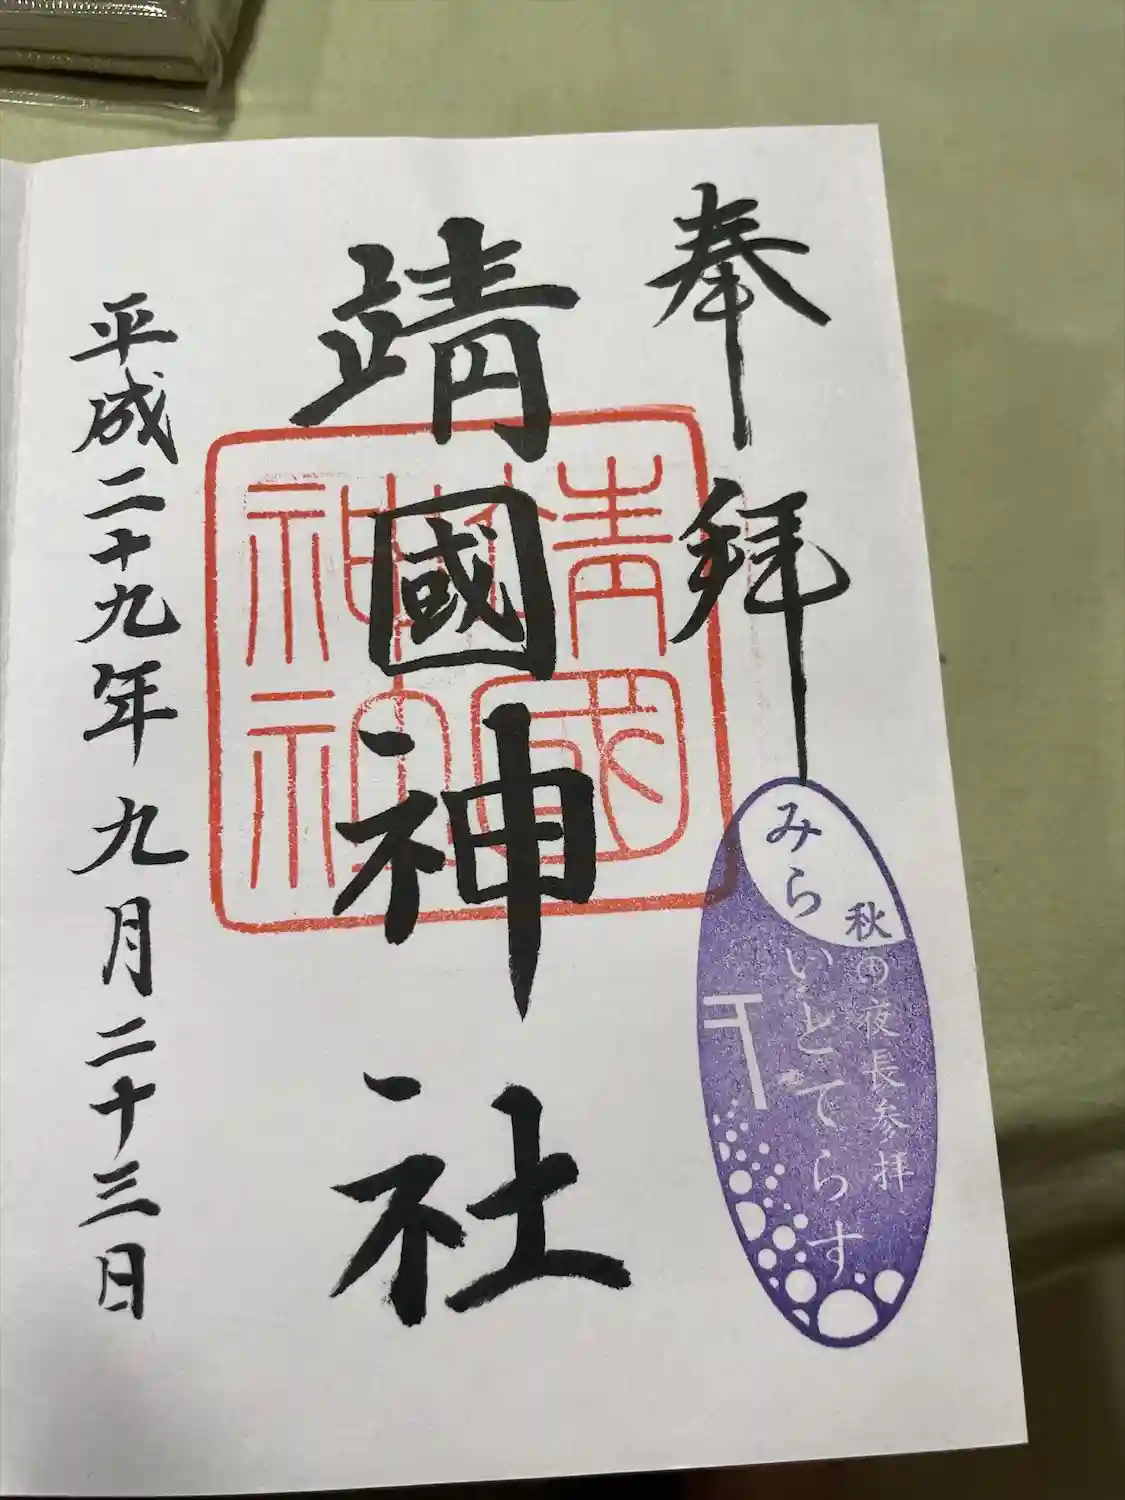 奉拝
靖國神社
平成二十九年九月二十三日
靖國
神社
秋の夜長参拝
みらいとてらす